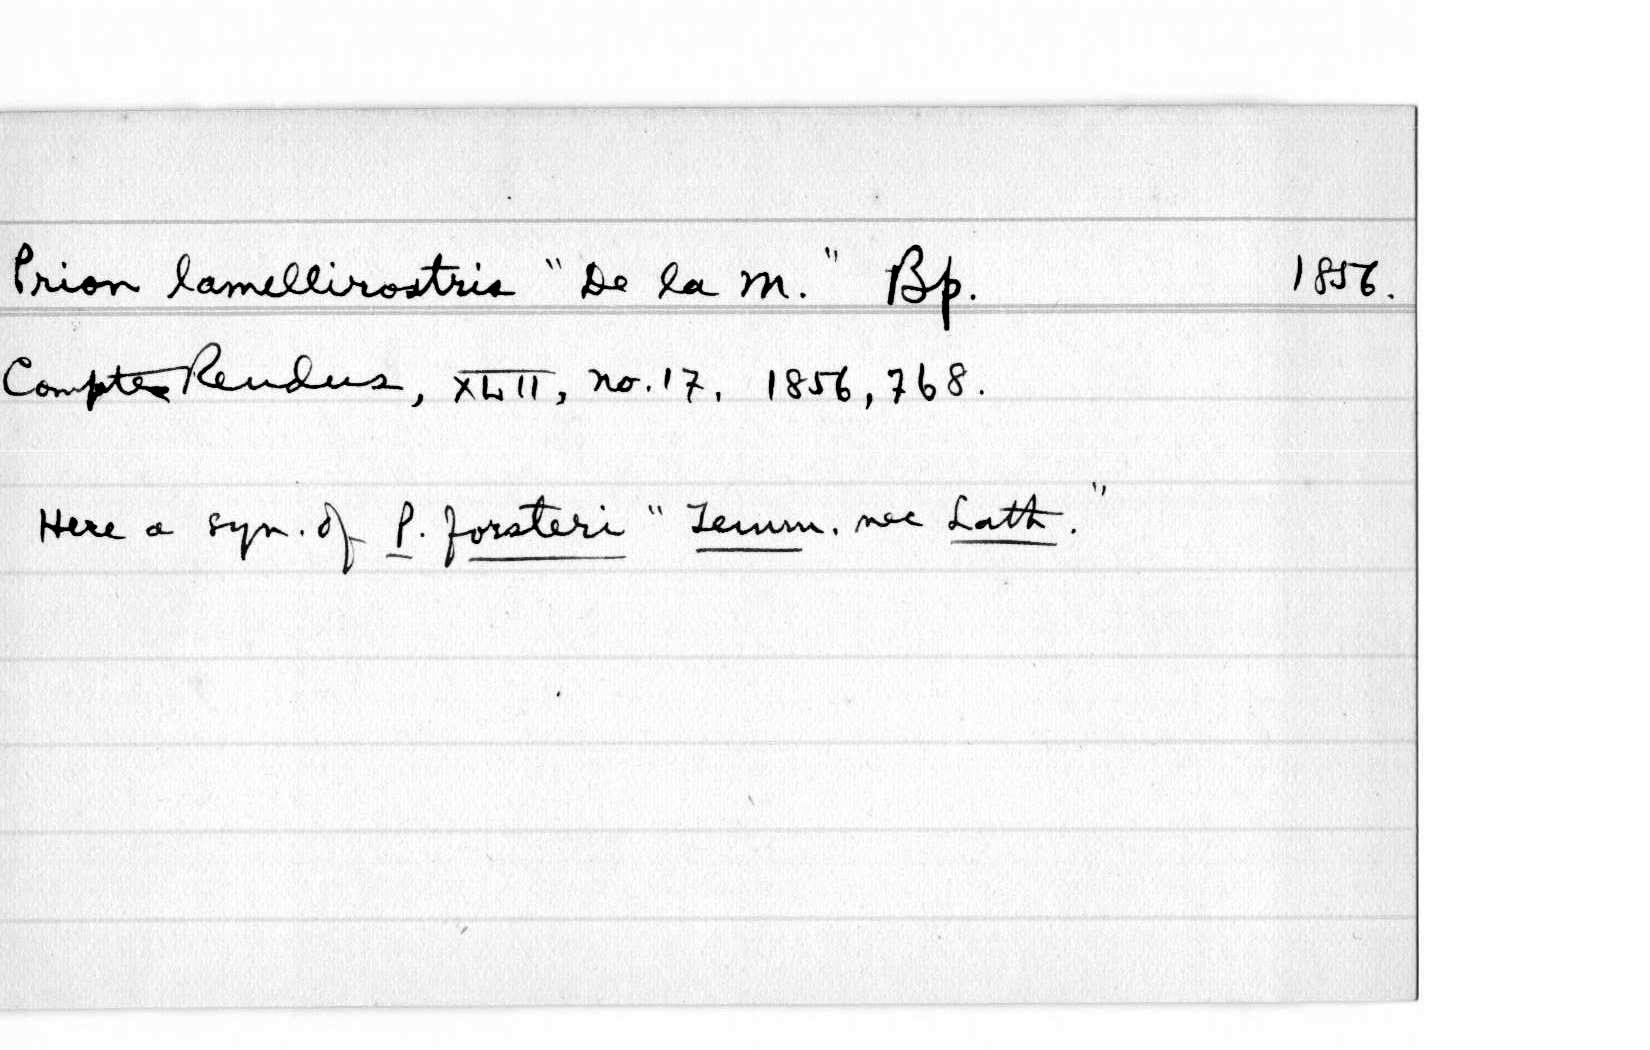 Prion lamellirostris "De la M." Bp. 1856.
Comptes Rendus, XLII, no. 17, 1856, 768.
Here a syn. of P. forsteri "Temm. nec Lath."